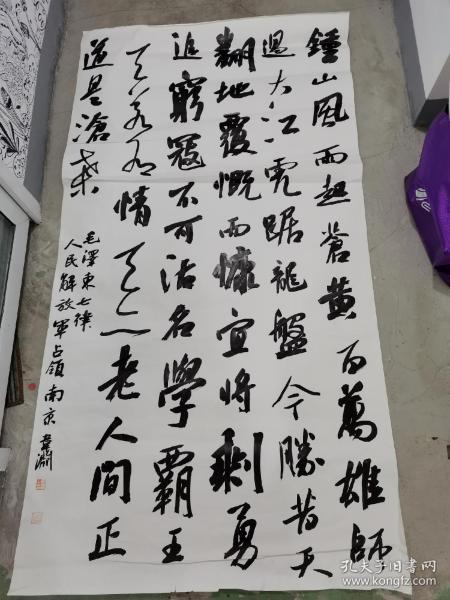 鍾山風雨起蒼黃百萬雄師
過大江虎踞龍盤今勝昔天
翻地覆慨而慷宜將剩勇
追窮寇不可沽名學霸王
天若有情天亦老人間正
道是滄桑
毛澤東七律
人民解放軍占領南京
孔夫子旧书网
www.kongfz.com